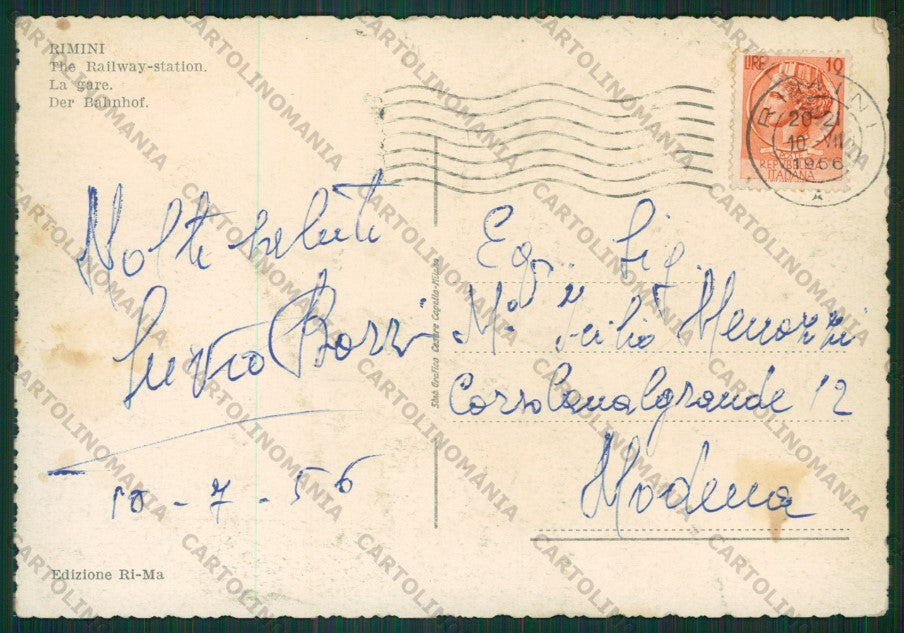 RIMINI
The Railway-station.
La gare.
Der Bahnhof.
LIRE 10
POSTE
REPUBBLICA
ITALIANA
RIMINI
20-21
10 VII
1956
A
Molti saluti
Bozzi
10-7-56
Eg. Sig.
M° Menozzi
Corso Canalgrande 12
Modena
Stab. Grafico Cesare Capello-Milano
Edizione Ri-Ma
CARTOLINOMANIA